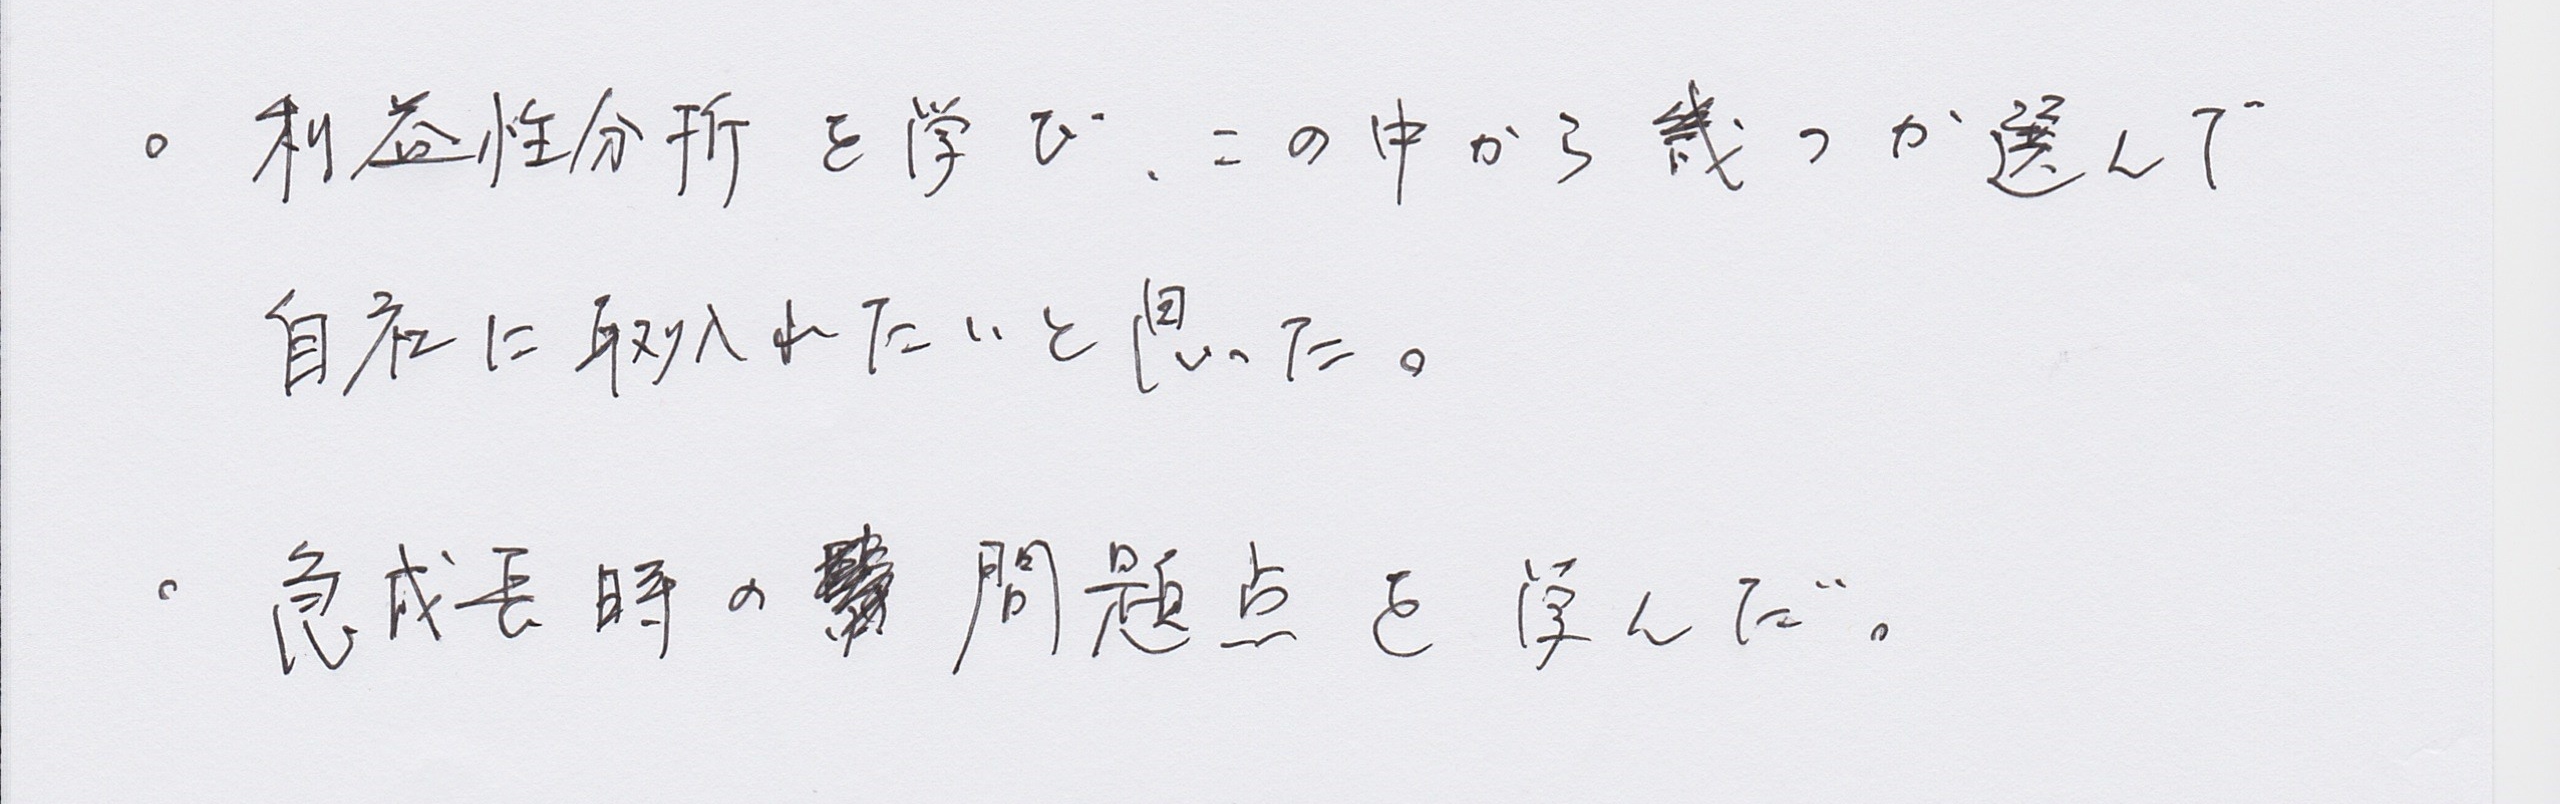 。利益性分析を学び、この中から幾つか選んで
自社に取入れたいと思った。
。急成長時の問題点を学んだ。